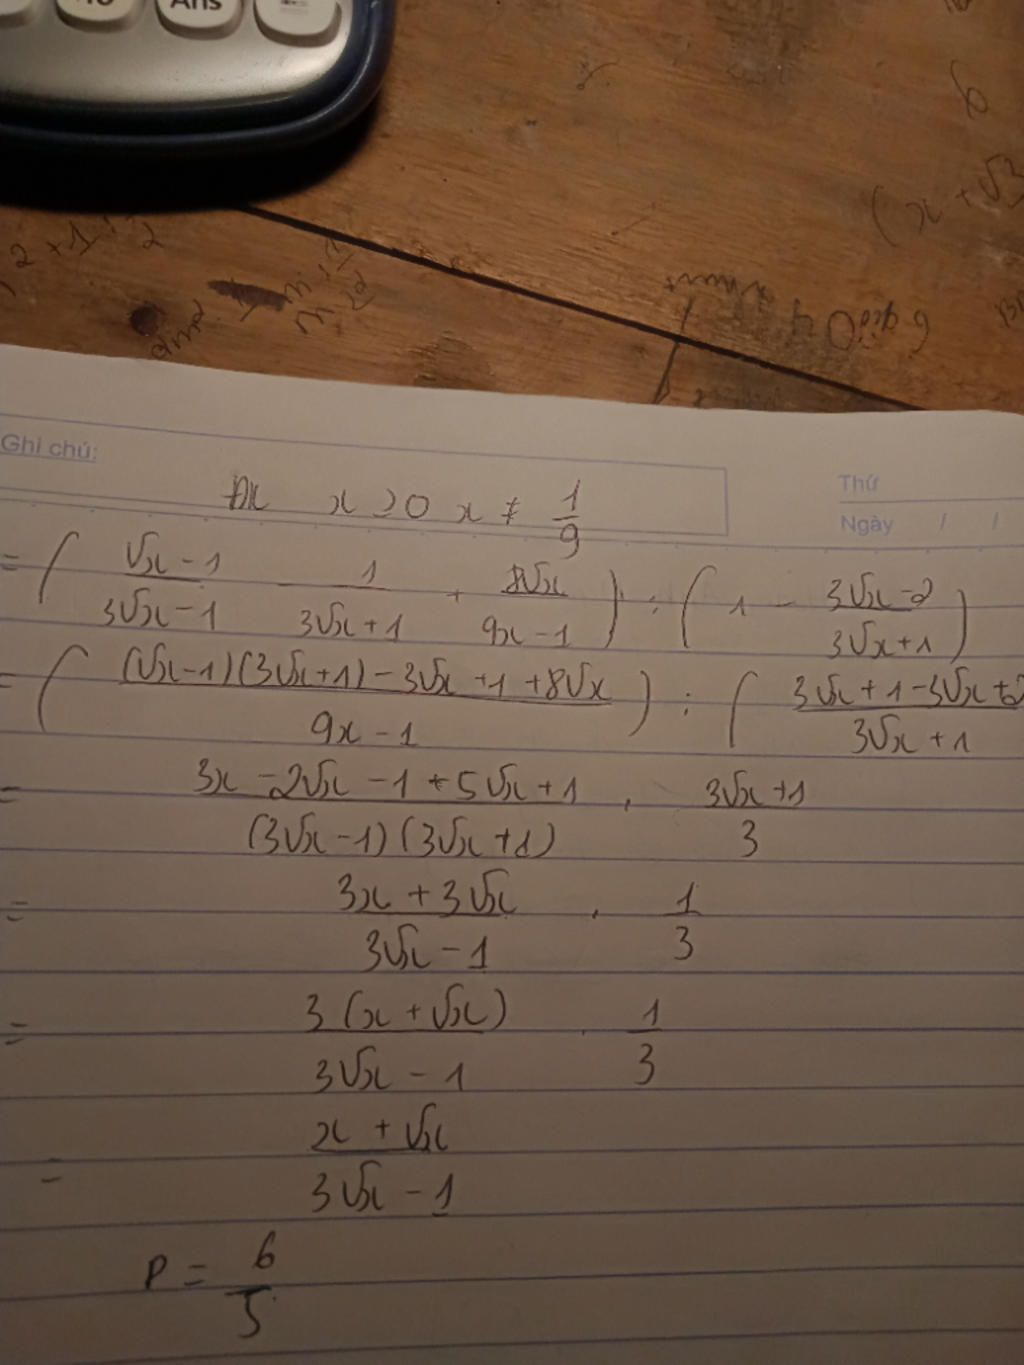 Ans
(x + √3
2 + 1
2
6 giờ 04
Ghi chú:
Thứ
Ngày / /
ĐK x ≥ 0 x ≠ 1/9
= ( (√x - 1)/(3√x - 1) - 1/(3√x + 1) + 8√x/(9x - 1) ) : ( 1 - (3√x - 2)/(3√x + 1) )
= ( ((√x - 1)(3√x + 1) - 3√x + 1 + 8√x)/(9x - 1) ) : ( (3√x + 1 - 3√x + 2)/(3√x + 1)
= (3x - 2√x - 1 + 5√x + 1)/((3√x - 1)(3√x + 1)) . (3√x + 1)/3
= (3x + 3√x)/(3√x - 1) . 1/3
= 3(x + √x)/(3√x - 1) . 1/3
= (x + √x)/(3√x - 1)
P = 6/5